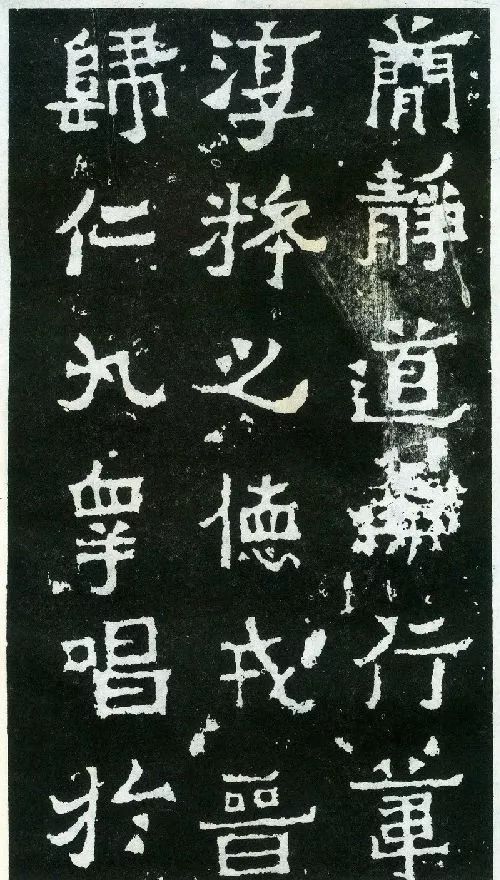 簡靜道兼行葦
淳粹之德戎晉
歸仁九皋唱於